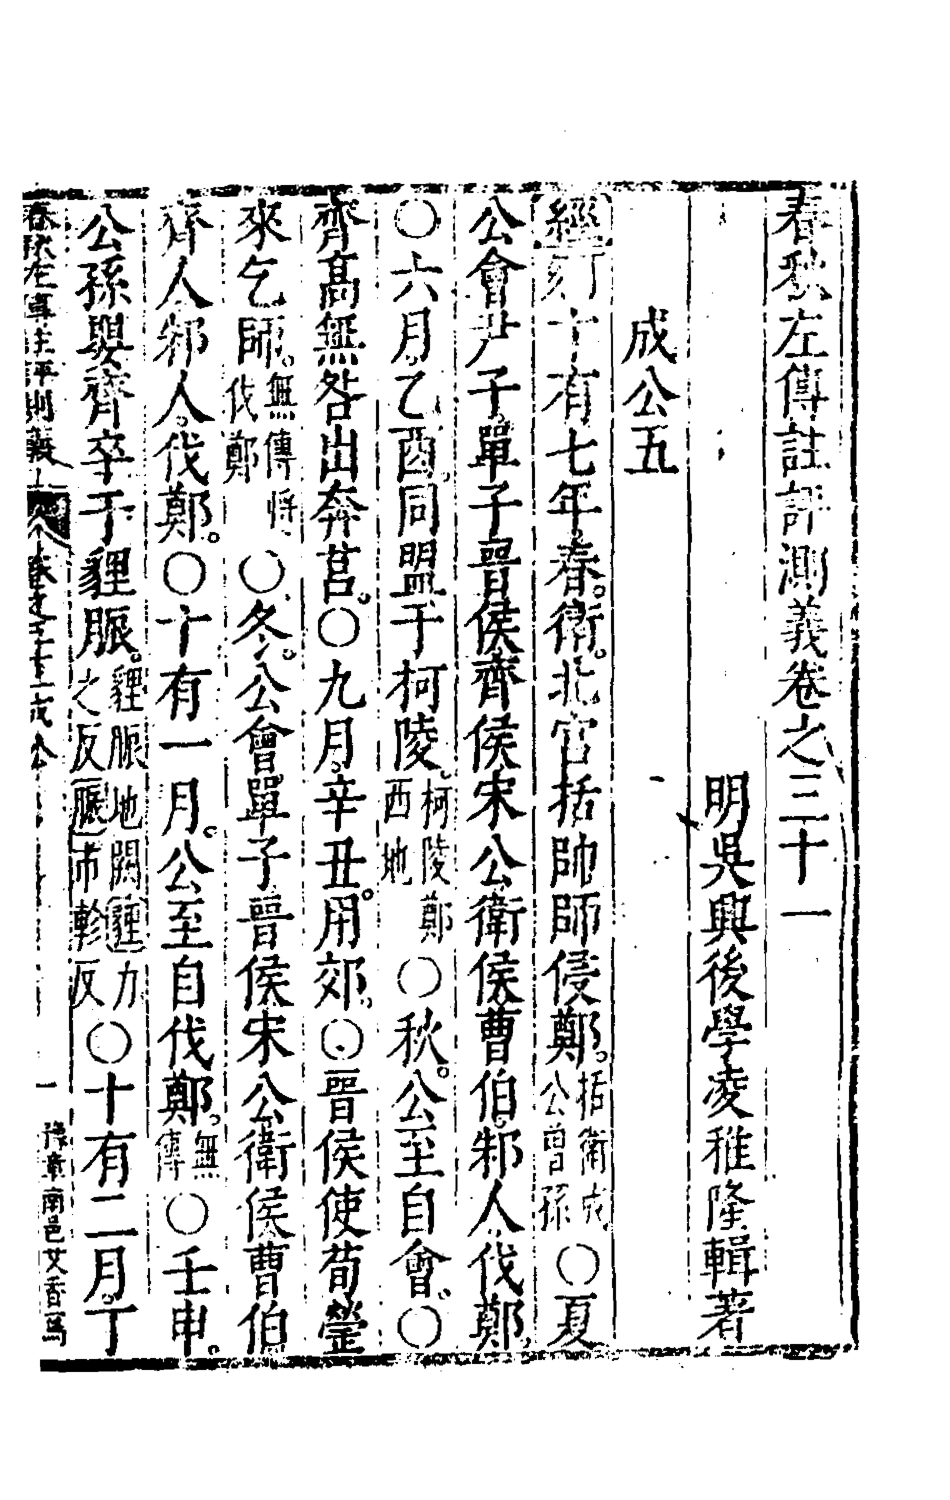 春秋左傳註評測義卷之三十一
明吳興後學凌稚隆輯著
成公五
經 十有七年春。衛北宮括帥師侵鄭。括衛成公曾孫〇夏
公會尹子單子晉侯齊侯宋公衛侯曹伯邾人伐鄭
〇六月乙酉。同盟于柯陵。柯陵鄭西地〇秋。公至自會。〇
齊高無咎出奔莒。〇九月辛丑。用郊。〇晉侯使荀罃
來乞師。無傳將伐鄭〇冬。公會單子晉侯宋公衛侯曹伯
齊人邾人。伐鄭。〇十有一月。公至自伐鄭。無傳〇壬申。
公孫嬰齊卒于貍脤。貍脤地闕貍力之反脤市軫反〇十有二月。丁
春秋左傳註評測義 卷之三十一成公 一 豫章南邑艾香寫